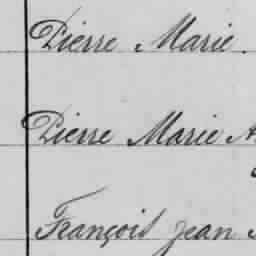 Pierre Marie.
Pierre Marie
François Jean